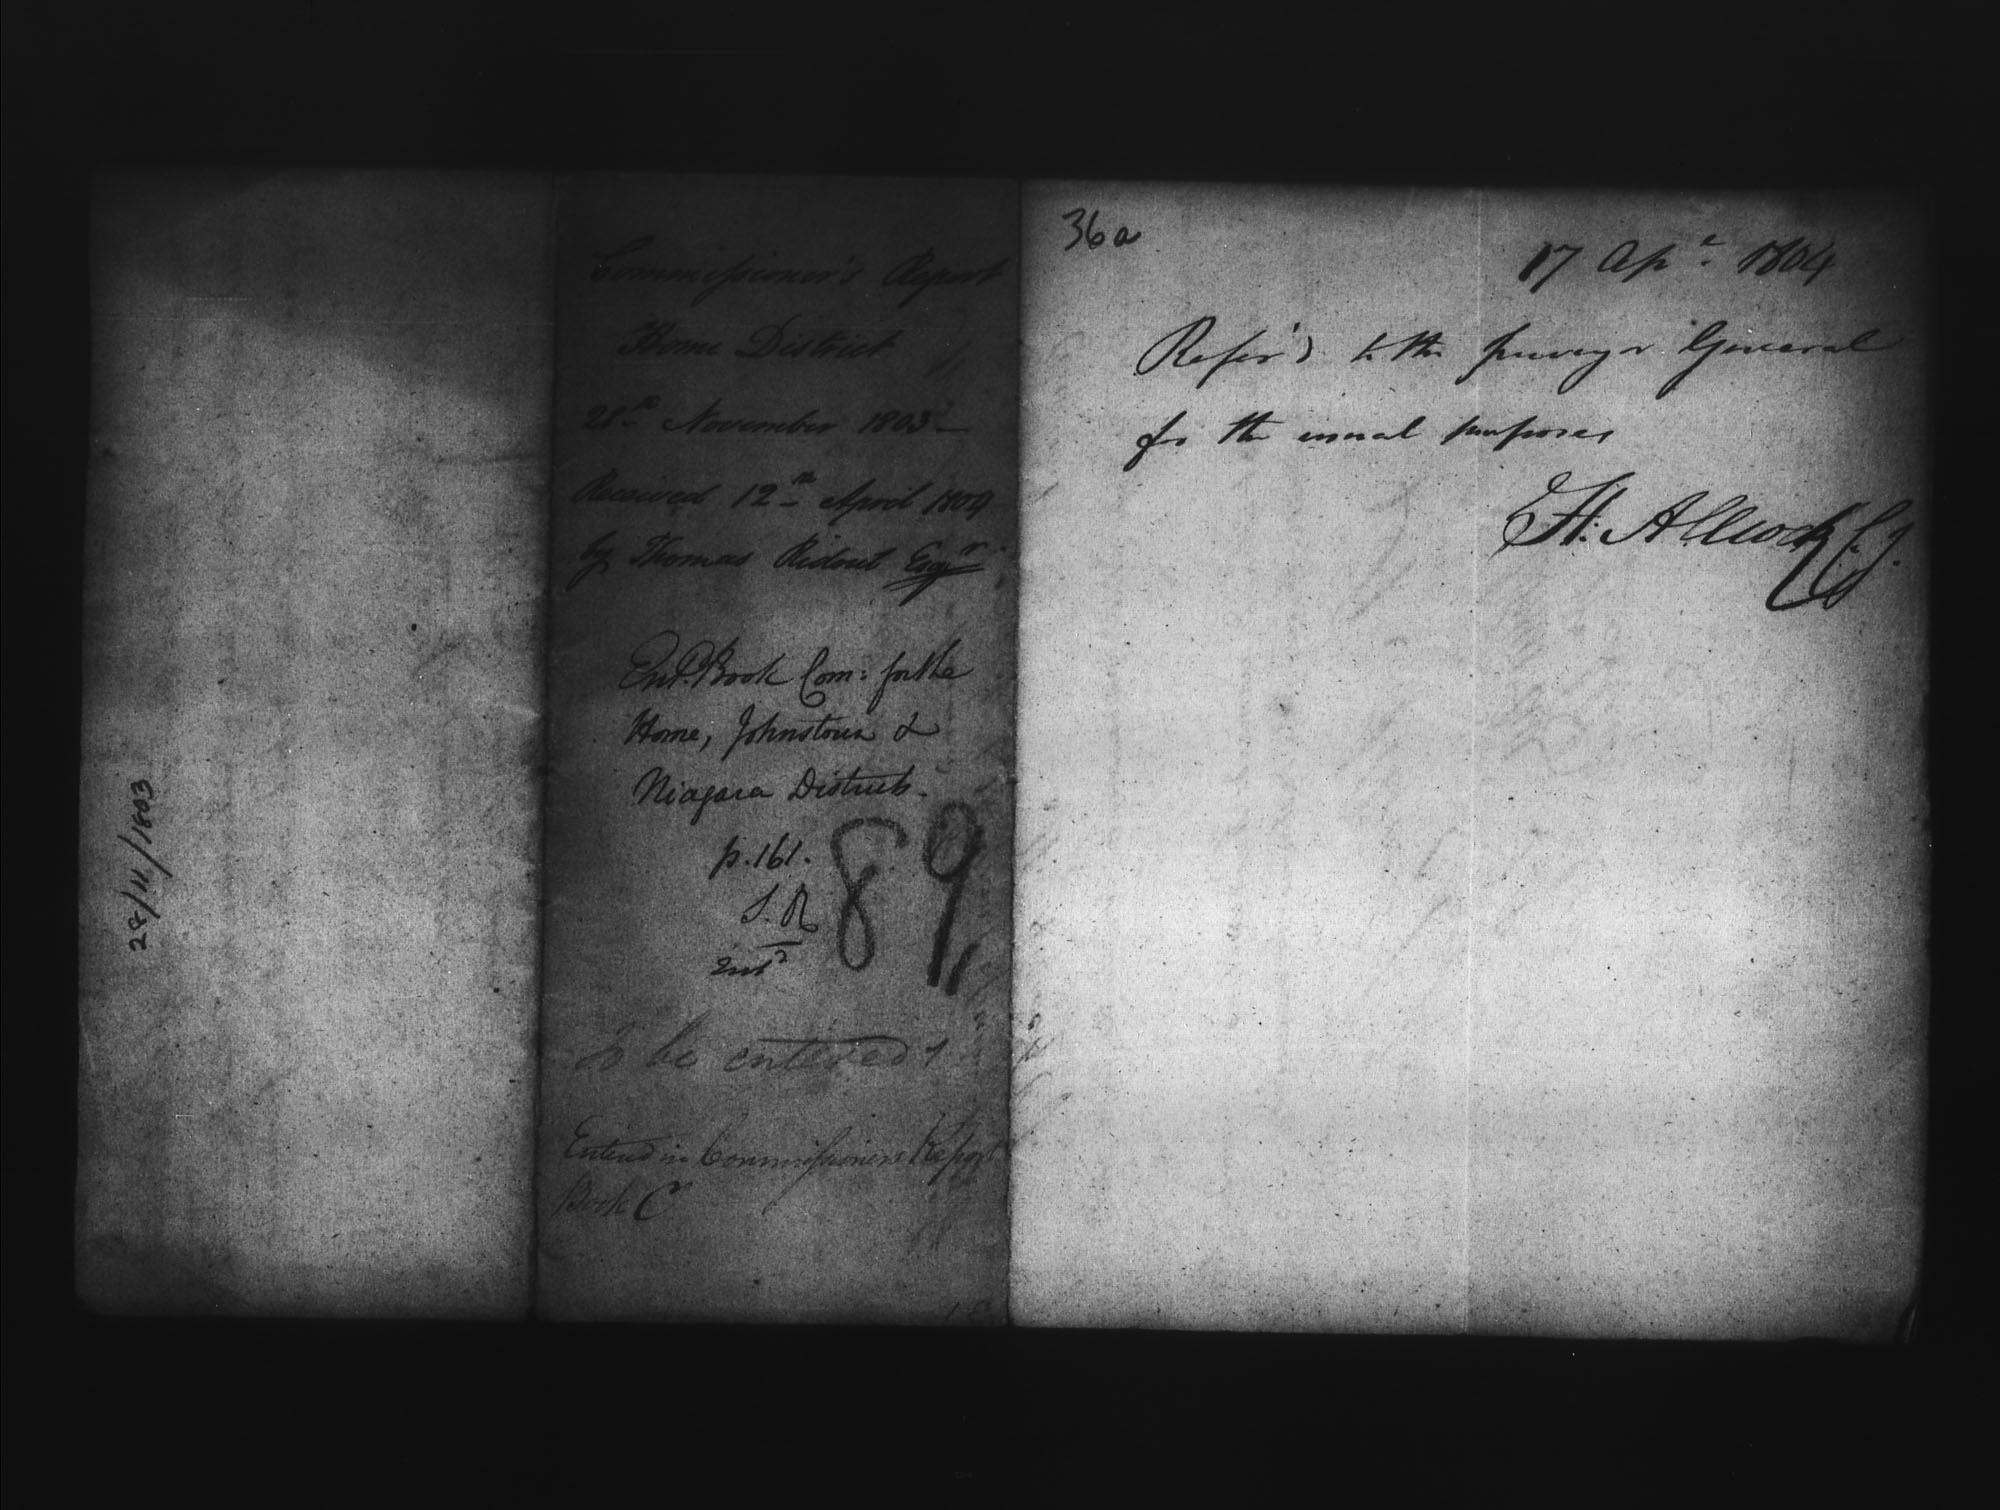 28/11/1803
Commissioner's Report
Home District
28th November 1803 —
Received 12th April 1804
by Thomas Ridout Esqr
Entd. Book Com: for the
Home, Johnstown &
Niagara Districts.
p. 161.
S. R
Entd
89
To be entered
Entered in Commissioners Report
Book C
36a
17 Apl. 1804
Refer'd to the Surveyor General
for the usual purposes
H: Allcock C.J.